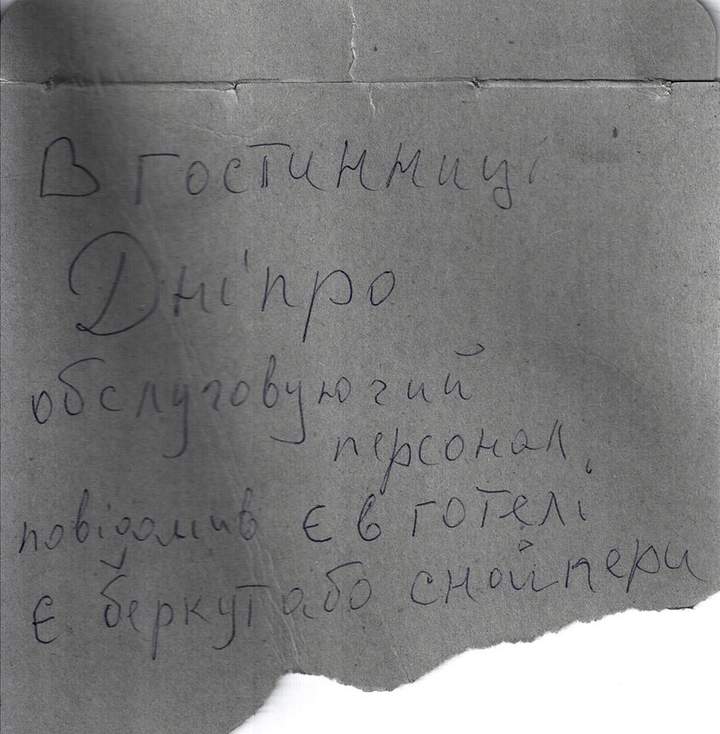 В гостинниці
Дніпро
обслуговуючий
персонал
повідомив є в готелі
є беркут або снайпери